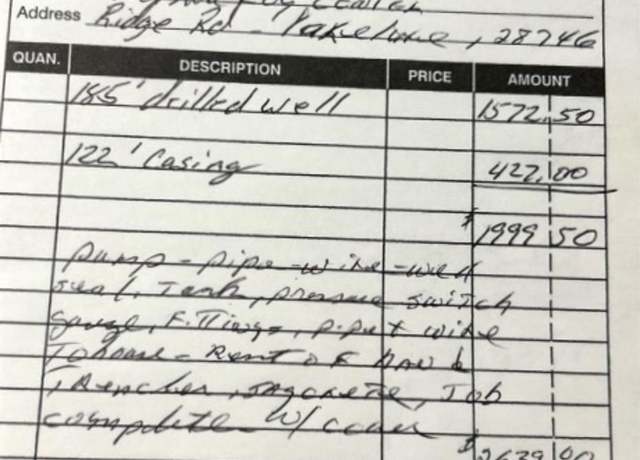 Address Ridge Rd - Lake Lure, 28746
QUAN. DESCRIPTION PRICE AMOUNT
185' drilled well 1572.50
122' Casing 427.00
$1999.50
pump - pipe - wire - well
seal, Tank, pressure switch
gauge, Fittings, pipe + wire
To house - Rent of
Trencher, Job
complete w/ cover